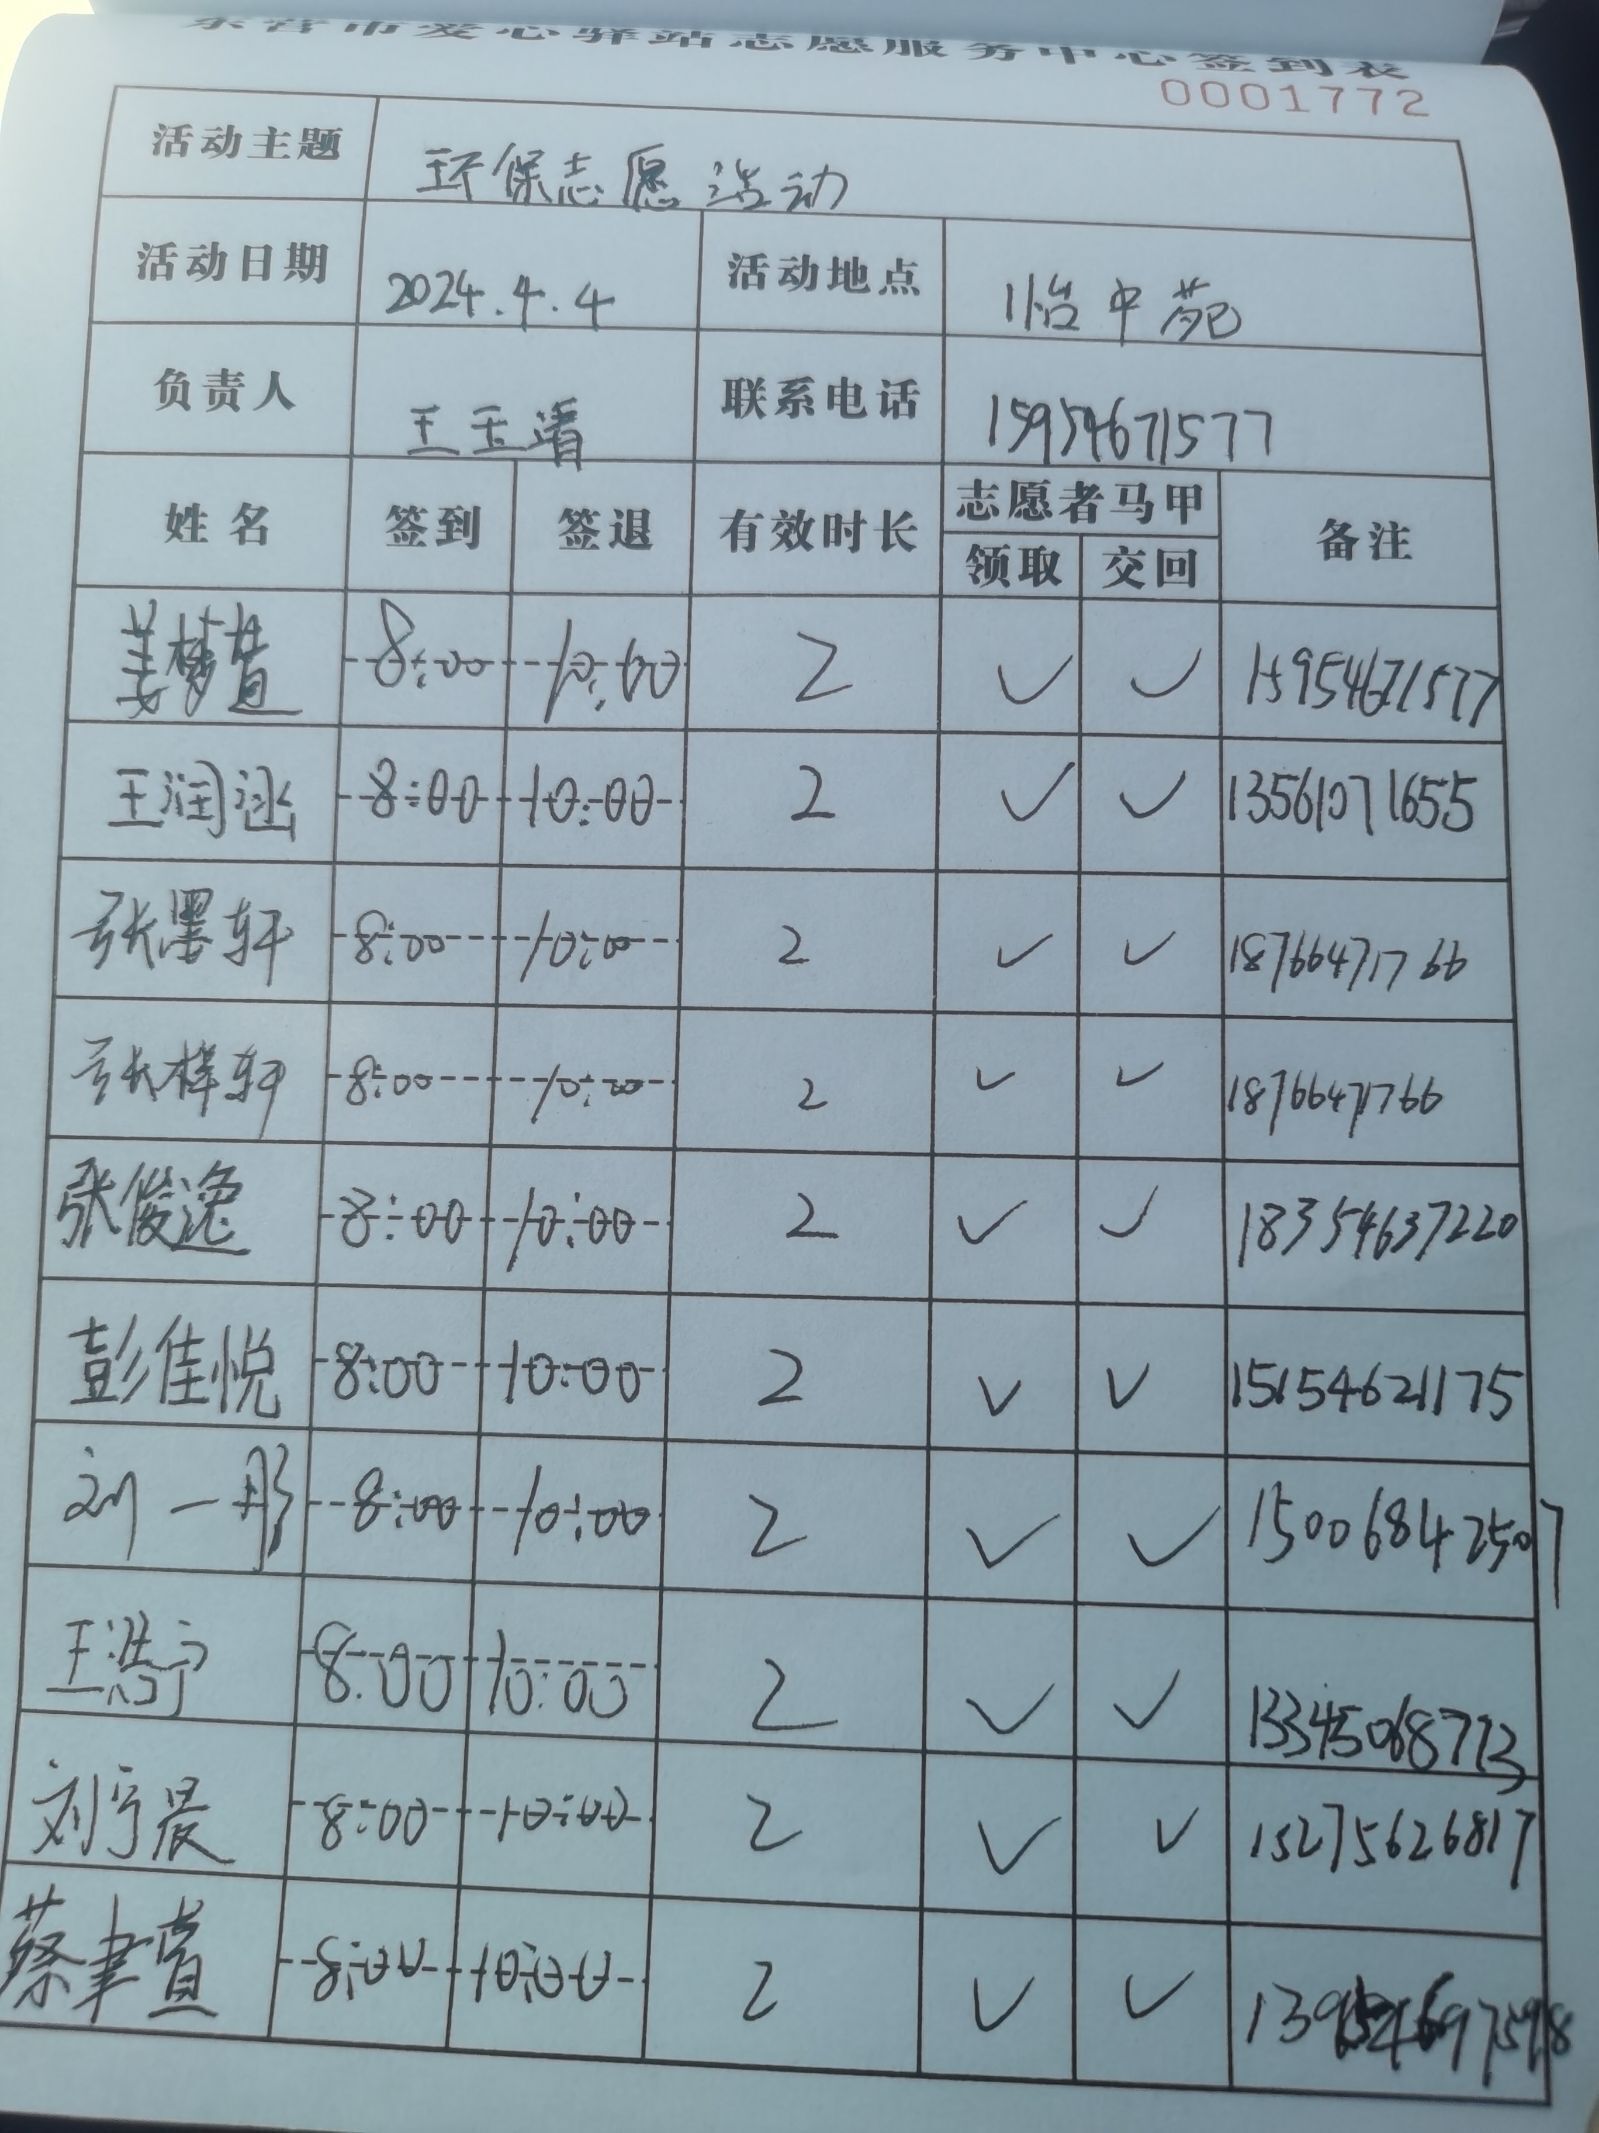 东营市爱心驿站志愿服务中心签到表
0001772
活动主题 环保志愿活动
活动日期 2024.4.4 活动地点 怡中苑
负责人 王玉清 联系电话 15954671577
姓名 签到 签退 有效时长 志愿者马甲 备注
领取 交回
姜梦萱 8:00 10:00 2 ✓ ✓ 15954671577
王润涵 8:00 10:00 2 ✓ ✓ 13561071655
张墨轩 8:00 10:00 2 ✓ ✓ 18766471766
张梓轩 8:00 10:00 2 ✓ ✓ 18766471766
张俊逸 8:00 10:00 2 ✓ ✓ 18354637220
彭佳悦 8:00 10:00 2 ✓ ✓ 15154621175
刘一彤 8:00 10:00 2 ✓ ✓ 15006842507
王浩宁 8:00 10:00 2 ✓ ✓ 13345068773
刘宁晨 8:00 10:00 2 ✓ ✓ 15275626817
蔡聿萱 8:00 10:00 2 ✓ ✓